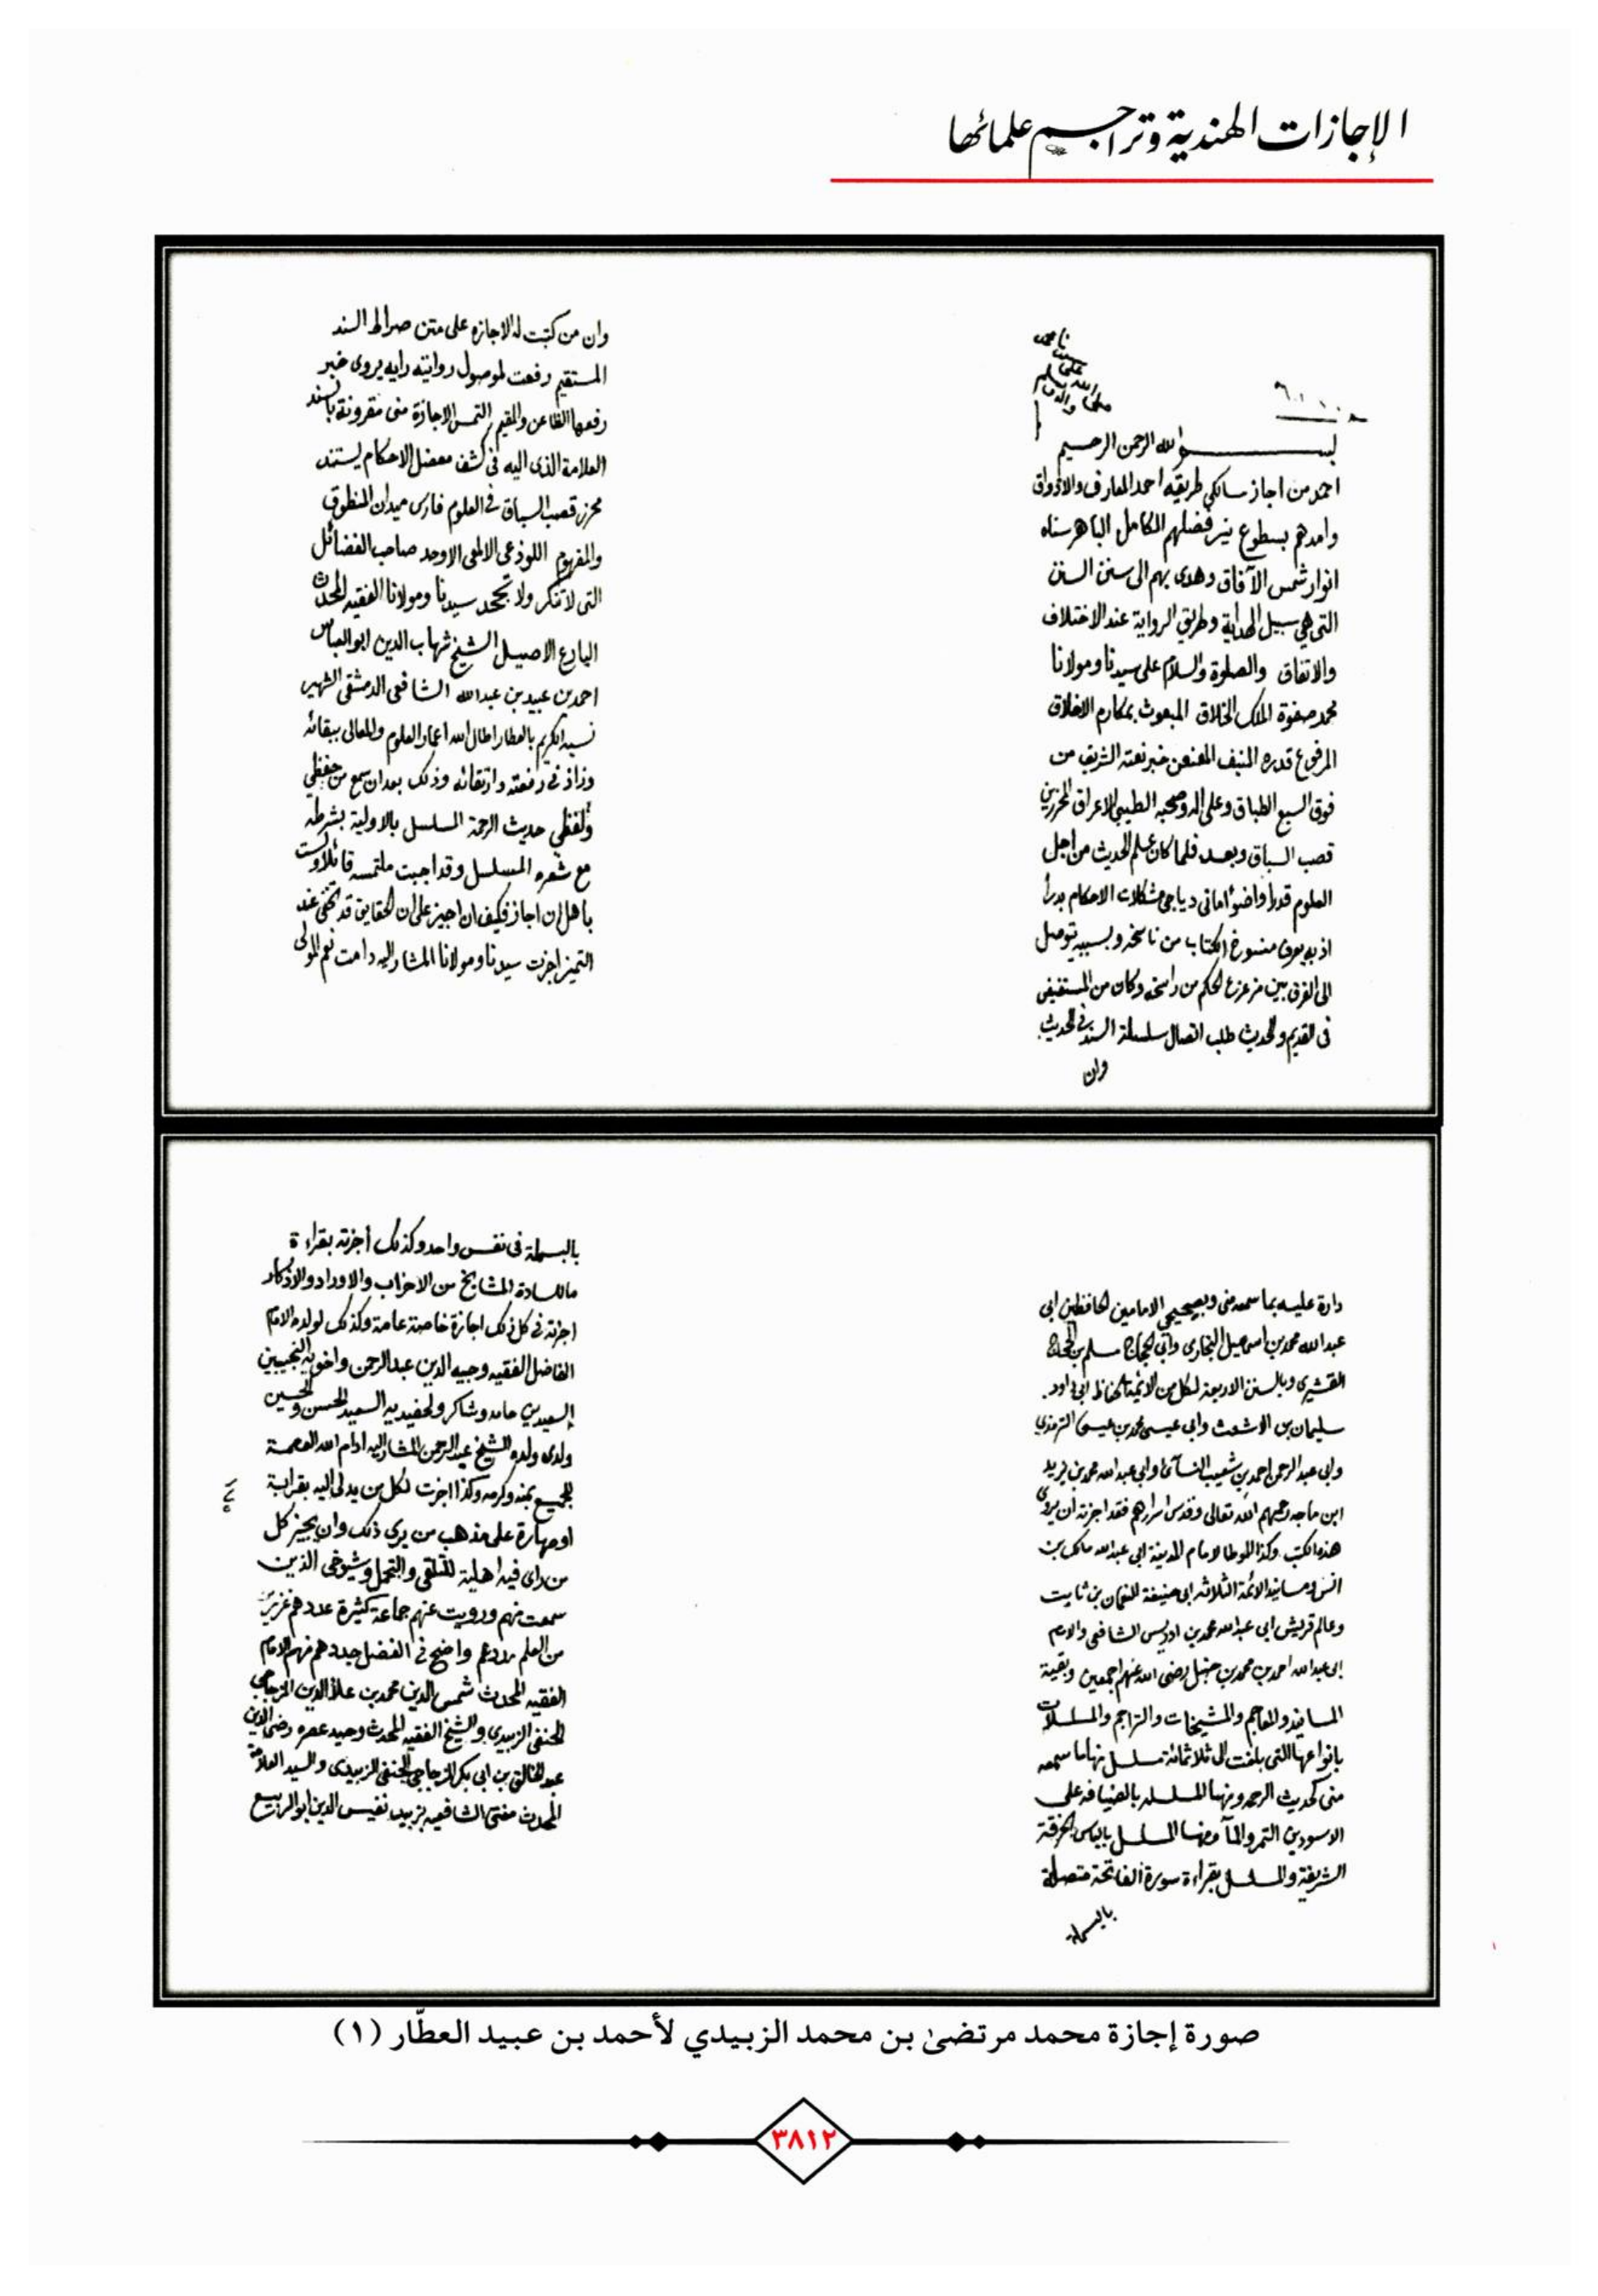 الإجازات الهندية وتراجم علمائها
بسم الله الرحمن الرحيم
احمد من اجاز سالكي طريقه احمد المعارف والاذواق
وامدهم بسطوع نير فضلهم الكامل الباهر سناه
انوار شمس الآفاق وهدى بهم الى سنن السنن
التي هي سبيل الهداية وطريق الرواية عند الاختلاف
والاتفاق والصلوة والسلام على سيدنا ومولانا
محمد صفوة الملك الخلاق المبعوث بمكارم الاخلاق
المرفوع قدره المنيف المعنعن خبر نعته الشريف من
فوق السبع الطباق وعلى اله وصحبه الطيبي الاعراق المحرزين
قصب السباق وبعد فلما كان علم الحديث من اجل
العلوم قدرا واضوأها في دياجي مشكلات الاحكام بدرا
اذ به يعرف منسوخ الكتاب من ناسخه وبسببه يتوصل
الى الفرق بين مزعزع الحكم من راسخه وكان من المستفيض
في القديم والحديث طلب اتصال سلسلة السند في الحديث
وان
وان من كتبت له الاجازه على متن صراط السند
المستقيم رفعت لموصول روايته رايه يروى خبر
رفعها الظاعن والمقيم التمس الاجازة مني مقرونة بالسند
العلامة الذي اليه في كشف معضل الاحكام يستند
محرز قصب السباق في العلوم فارس ميدان المنطوق
والمفهوم اللوذعي الالمعي الاوحد صاحب الفضائل
التي لا تنكر ولا تجحد سيدنا ومولانا الفقيه المحدث
البارع الاصيل الشيخ شهاب الدين ابو العباس
احمد بن عبيد بن عبد الله الشافعي الدمشقي الشهير
نسبه الكريم بالعطار اطال الله اعمار العلوم والمعالي ببقائه
وزاد في رفعته وارتقائه وذلك بعد ان سمع من حفظي
ولفظي حديث الرحمة المسلسل بالاولية بشرطه
مع شعره المسلسل وقد اجبت ملتمسه قائلا ولست
بأهل ان اجاز فكيف ان اجيز على ان الحقايق قد تخفى عند
التميز اجزت سيدنا ومولانا المشار اليه دامت نعم المولى
دارة عليه بما سمعه مني وبصحيحي الامامين الحافظين ابي
عبد الله محمد بن اسمعيل البخاري وابي الحجاج مسلم بن الحجاج
القشيري وبالسنن الاربعة لكل من الائمة الحفاظ ابي داود
سليمان بن الاشعث وابي عيسى محمد بن عيسى الترمذي
وابي عبد الرحمن احمد بن شعيب النسائي وابي عبد الله محمد بن يزيد
ابن ماجه رحمهم الله تعالى وقدس اسرارهم فقد اجزته ان يروي
هذه الكتب وكذا الموطا لامام المدينة ابي عبد الله مالك بن
انس ومسانيد الائمة الثلاثه ابي حنيفة النعمان بن ثابت
وعالم قريش ابي عبد الله محمد بن ادريس الشافعي والامام
ابي عبد الله احمد بن محمد بن حنبل رضي الله عنهم اجمعين وبقية
المسانيد والمعاجم والمشيخات والتراجم والمسلسلات
بانواعها التي بلغت الى ثلاثمائة مسلسل منها ما سمعه
مني كحديث الرحمه ومنها المسلسل بالضيافه على
الاسودين التمر والمآ ومنها المسلسل بالباس الخرقة
الشريفة والمسلسل بقراءة سورة الفاتحة متصلة
بالبسملة
بالبسملة في نفس واحد وكذلك أجزته بقراءة
ما للسادة المشايخ من الاحزاب والاوراد والاذكار
اجزته في كل ذلك اجازة خاصة عامة وكذلك لولده الامام
الفاضل الفقيه وجيه الدين عبد الرحمن واخويه النجيبين
السعيدين حامد وشاكر ولحفيديه السعيد الحسن والحسين
ولدي ولده الشيخ عبد الرحمن المشار اليه ادام الله العصمة
للجميع بمنه وكرمه وكذا اجزت لكل من يدلي اليه بقرابة
او صهارة على مذهب من يرى ذلك وان يجيز كل
من راى فيه اهلية للتلقي والتحمل وشيوخي الذين
سمعت منهم ورويت عنهم جماعة كثيرة عددهم غزير
من العلم مددهم واضح في الفضل جددهم منهم الامام
الفقيه المحدث شمس الدين محمد بن علاء الدين المزجاجي
الحنفي الزبيدي والشيخ الفقيه المحدث وحيد عصره رضي الدين
عبد الخالق بن ابي بكر المزجاجي الحنفي الزبيدي والسيد العلامة
المحدث مفتي الشافعيه بزبيد نفيس الدين ابو الربيع
صورة إجازة محمد مرتضىٰ بن محمد الزبيدي لأحمد بن عبيد العطّار (١)
٣٨١٢